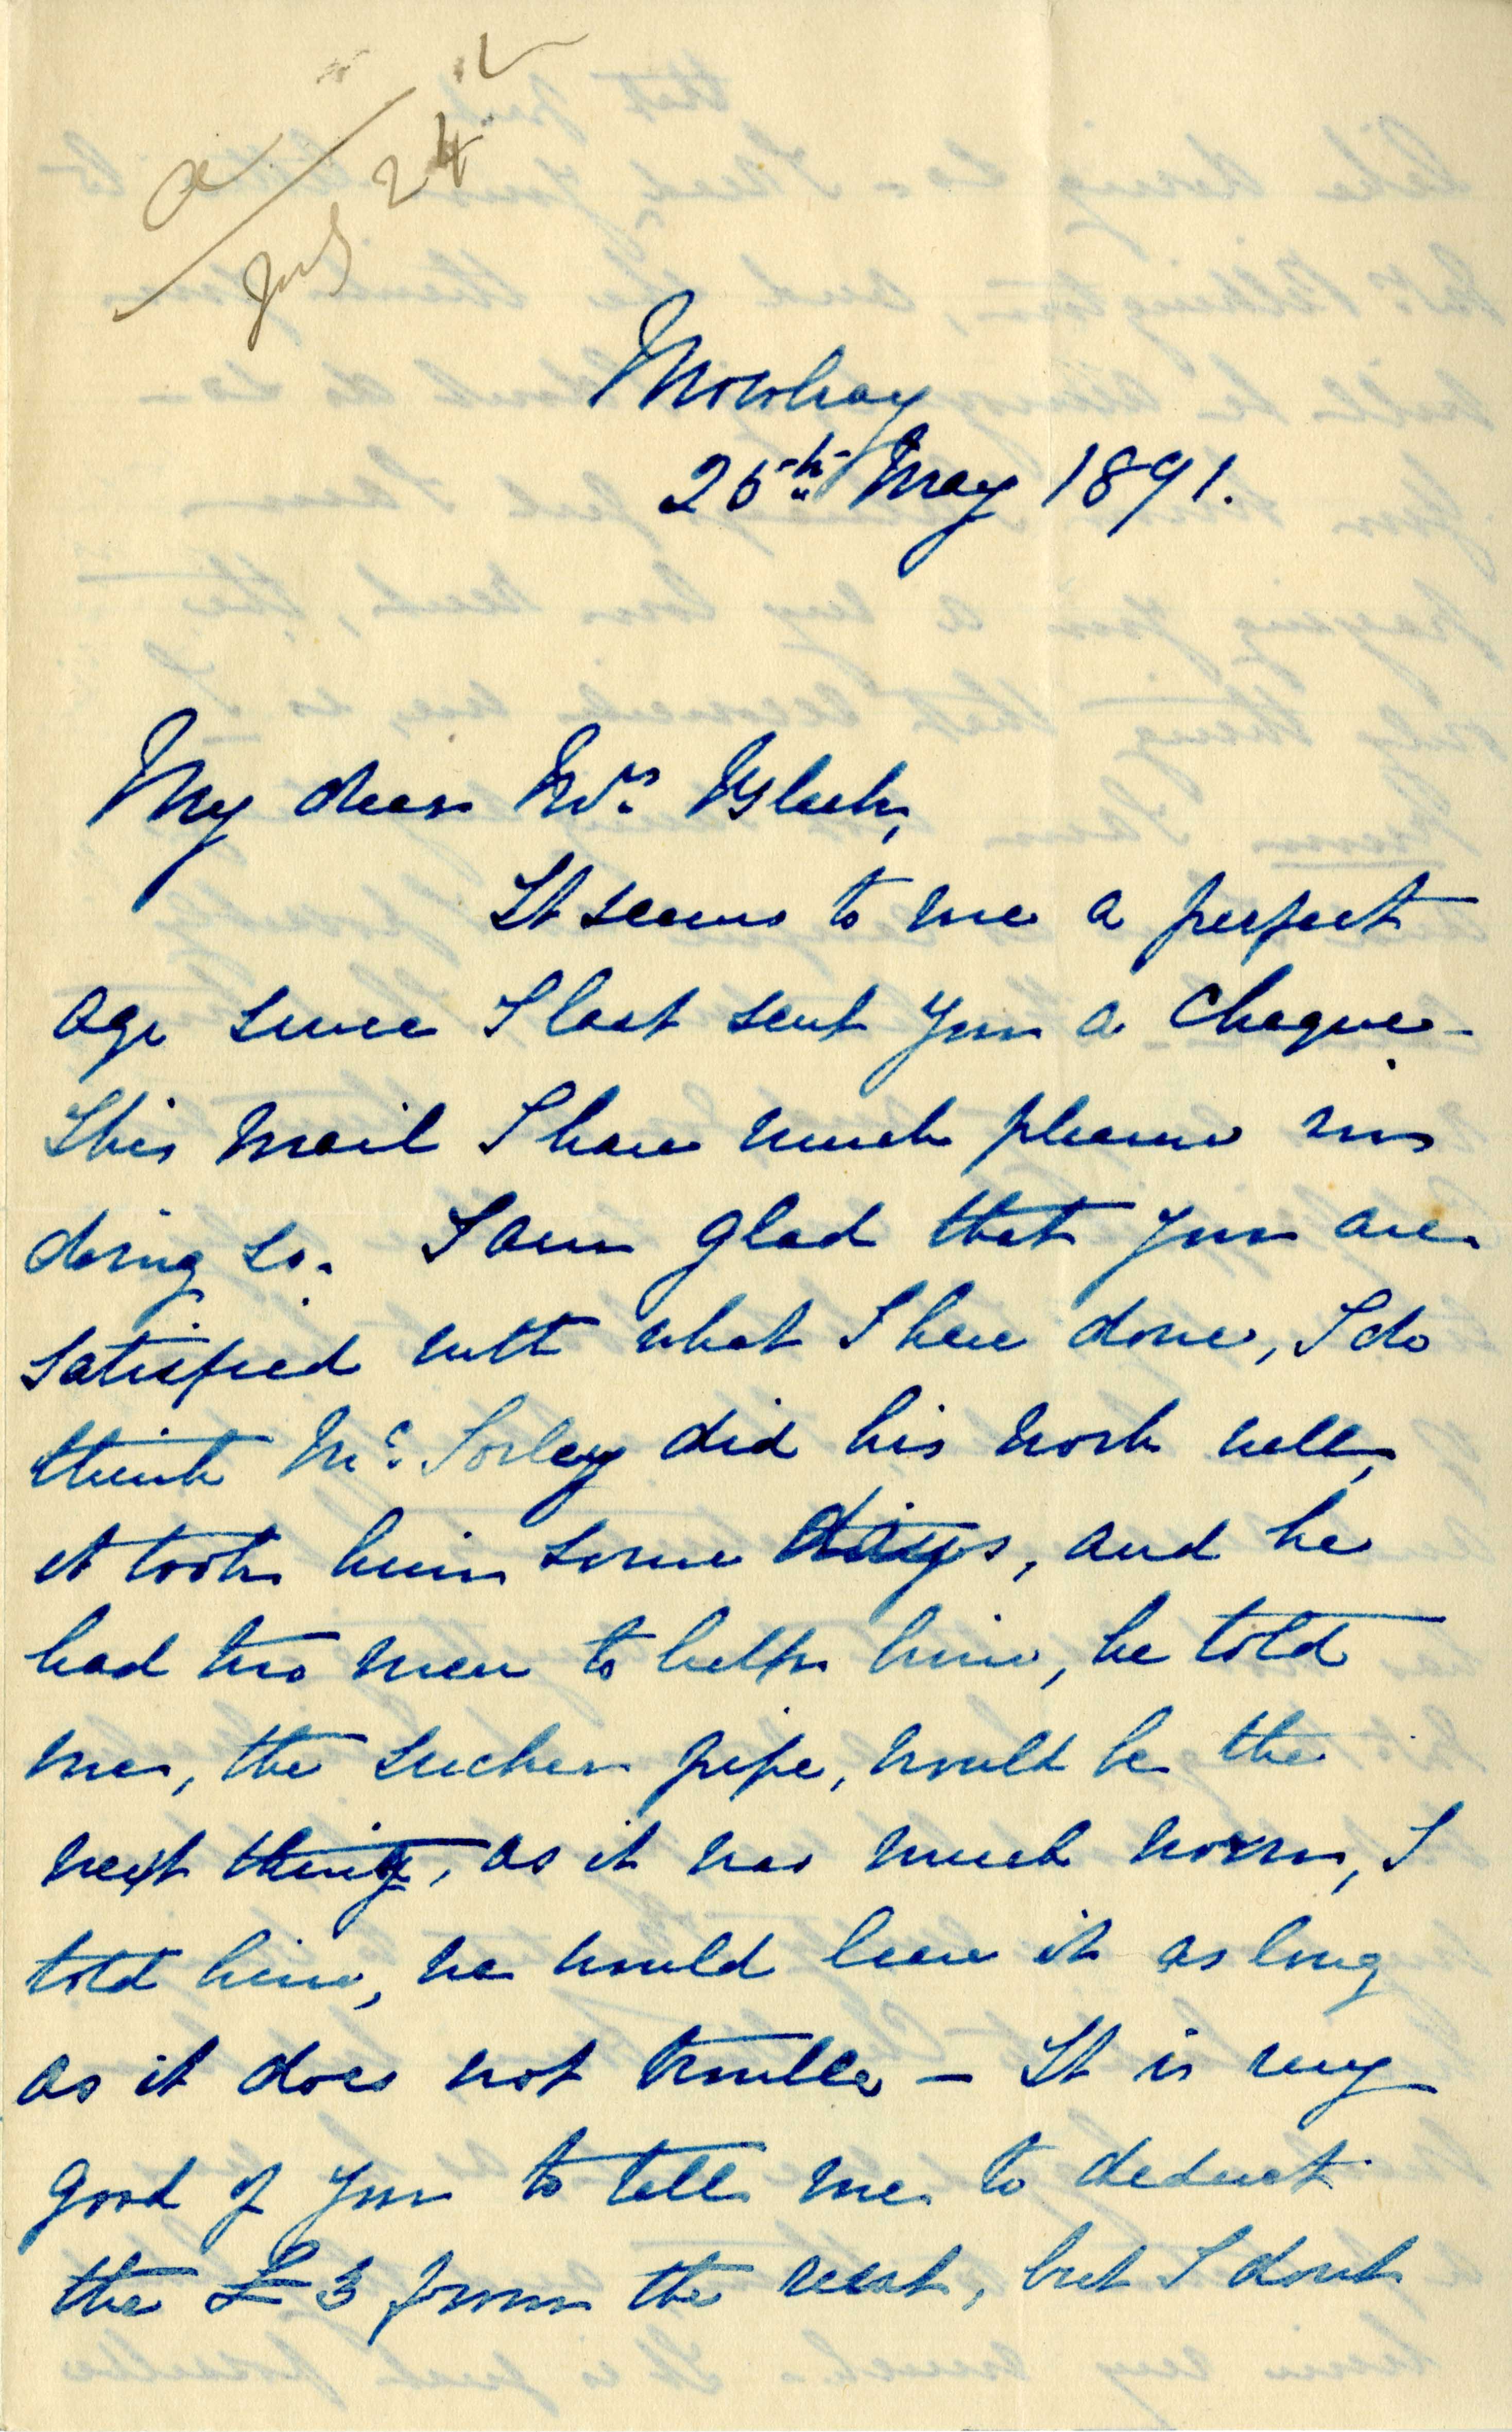 a/
July 24
Mowbray
25th May 1891.
My dear Mrs Bleek,
It seems to me a perfect
age since I last sent you a Cheque -
This mail I have much pleasure in
doing so. I am glad that you are
satisfied with what I have done, I do
think Mc. Sorley did his work well,
it took him some days, and he
had two men to help him, he told
me, the sucker pipe, would be the
next thing, as it was much worn, I
told him, we would leave it as long
as it does not trouble - It is very
good of you to tell me to deduct
the £3 from the rent, but I dont